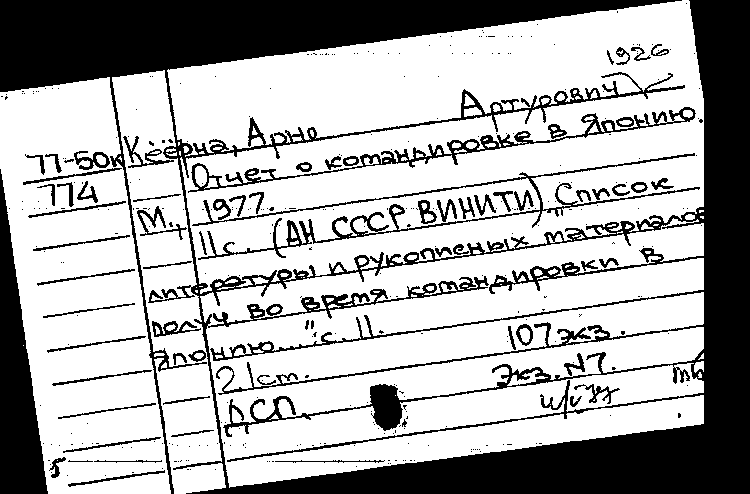 1926
77-50к Кеёрна, Арно Артурович
774 Отчет о командировке в Японию.
М., 1977.
11с. (АН СССР. ВИНИТИ) "Список
литературы и рукописных материалов
получ. во время командировки в
Японию..." : с. 11.
107 экз.
21 ст. Экз. N7.
ДСП.
5